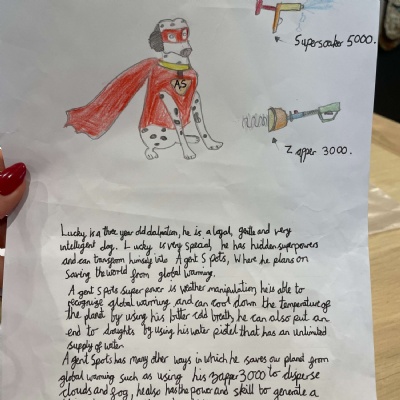 Supersoaker 5000.
AS
Zapper 3000.
Lucky is a three year old dalmation, he is a loyal, gentle and very
intelligent dog. Lucky is very special, he has hidden superpowers
and can transform himself into Agent Spots, Where he plans on
saving the world from global warming.
Agent Spots super power is weather manipulation, he is able to
recognise global warming and can cool down the temperature of
the planet by using his bitter cold breath, he can also put an
end to droughts by using his water pistol that has an unlimited
supply of water.
Agent Spots has many other ways in which he saves our planet from
global warming such as using his zapper 3000 to disperse
clouds and fog, he also has the power and skill to generate a